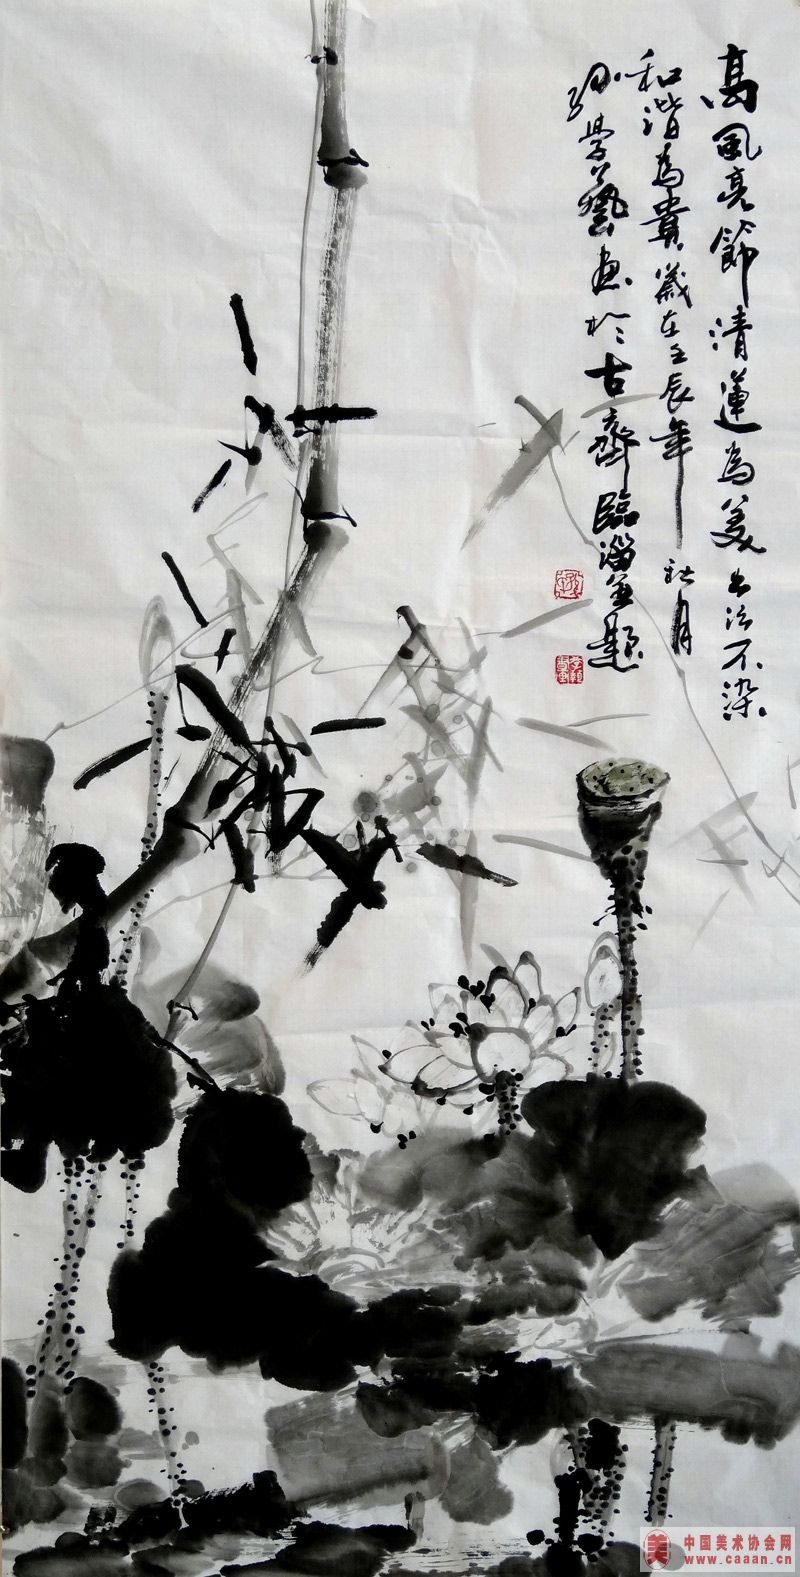 高風亮節清蓮為美出污不染
和谐為貴歲在壬辰年秋月
學藝畫於古齋臨淄並題
中国美术协会网
www.caaan.cn